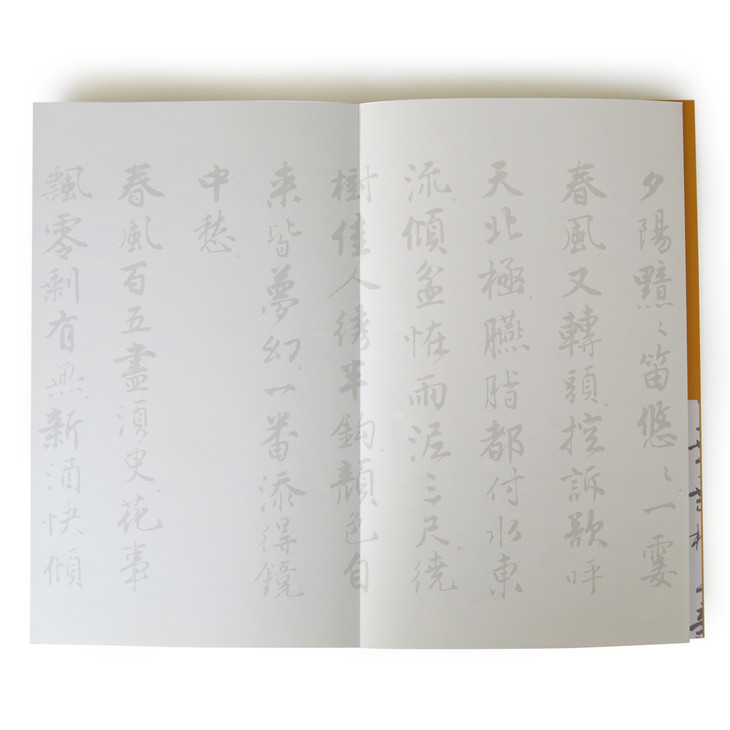 夕陽黯〻笛悠〻一霎
春風又轉頭控訴欲呼
天北極臙脂都付水東
流傾盆怪雨泥三尺繞
樹佳人綉半鈎顏色自
来皆夢幻一番添得鏡
中愁
春風百五盡須臾花事
飄零剩有無新酒快傾